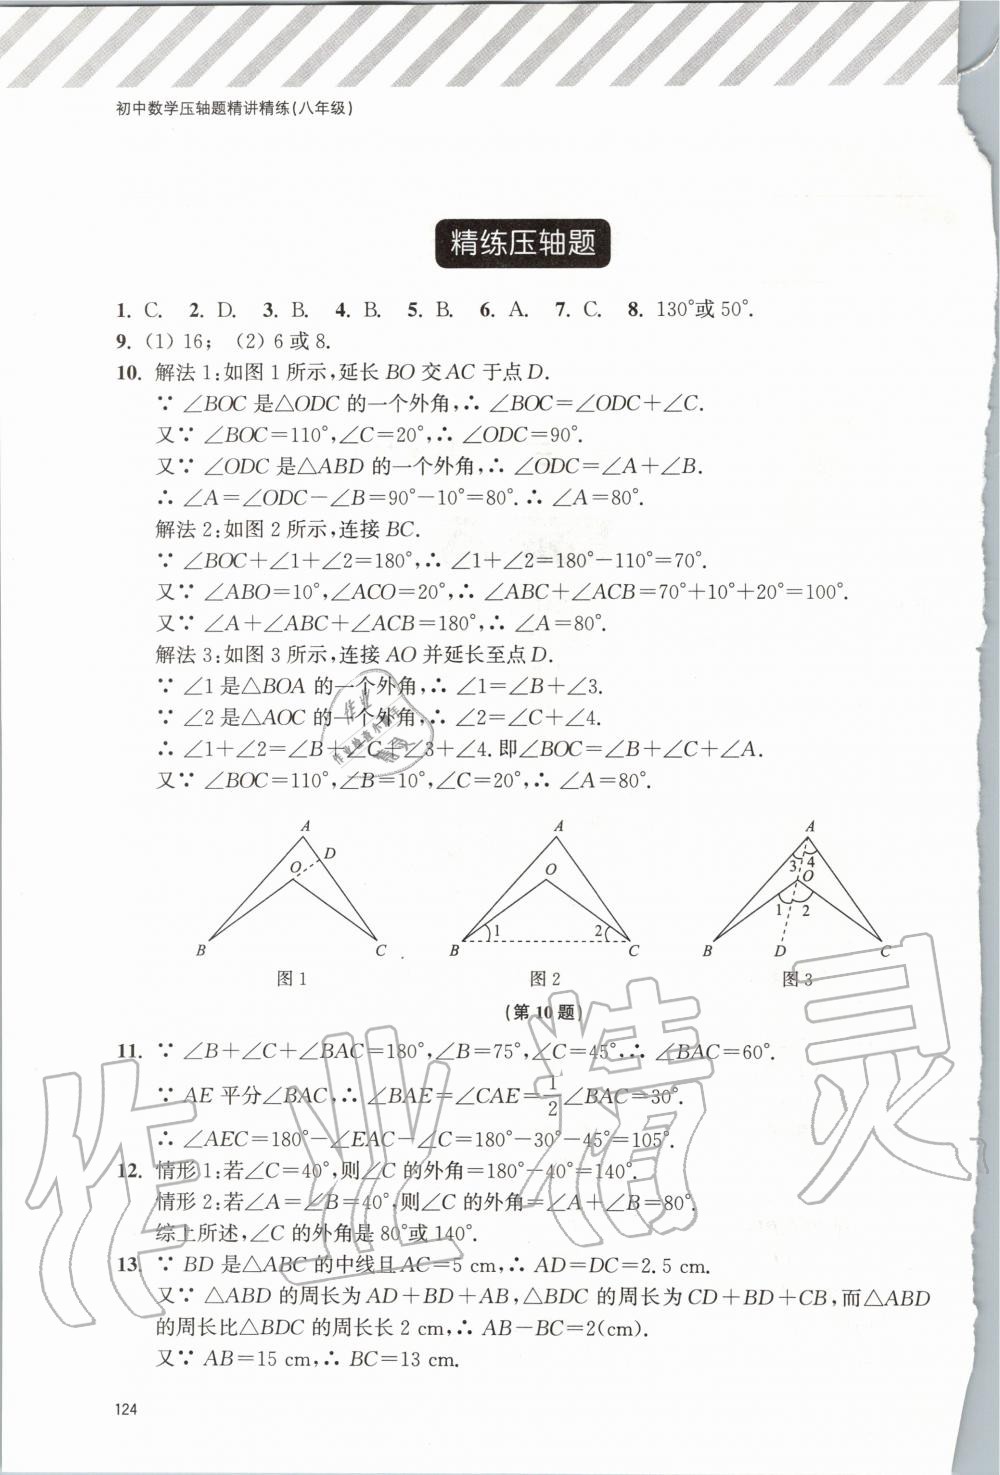 初中数学压轴题精讲精练(八年级)
精练压轴题
1. C. 2. D. 3. B. 4. B. 5. B. 6. A. 7. C. 8. 130°或 50°.
9. (1) 16; (2) 6 或 8.
10. 解法 1:如图 1 所示,延长 BO 交 AC 于点 D.
∵ ∠BOC 是△ODC 的一个外角,∴ ∠BOC=∠ODC+∠C.
又∵ ∠BOC=110°,∠C=20°,∴ ∠ODC=90°.
又∵ ∠ODC 是△ABD 的一个外角,∴ ∠ODC=∠A+∠B.
∴ ∠A=∠ODC-∠B=90°-10°=80°.∴ ∠A=80°.
解法 2:如图 2 所示,连接 BC.
∵ ∠BOC+∠1+∠2=180°,∴ ∠1+∠2=180°-110°=70°.
又∵ ∠ABO=10°,∠ACO=20°,∴ ∠ABC+∠ACB=70°+10°+20°=100°.
又∵ ∠A+∠ABC+∠ACB=180°,∴ ∠A=80°.
解法 3:如图 3 所示,连接 AO 并延长至点 D.
∵ ∠1 是△BOA 的一个外角,∴ ∠1=∠B+∠3.
∵ ∠2 是△AOC 的一个外角,∴ ∠2=∠C+∠4.
∴ ∠1+∠2=∠B+∠C+∠3+∠4.即∠BOC=∠B+∠C+∠A.
又∵ ∠BOC=110°,∠B=10°,∠C=20°,∴ ∠A=80°.
A D O B C
图 1
A O B 1 2 C
图 2
A 3 4 O 1 2 B D C
图 3
(第 10 题)
11. ∵ ∠B+∠C+∠BAC=180°,∠B=75°,∠C=45°,∴ ∠BAC=60°.
∵ AE 平分∠BAC,∴ ∠BAE=∠CAE=1/2∠BAC=30°.
∴ ∠AEC=180°-∠EAC-∠C=180°-30°-45°=105°.
12. 情形 1:若∠C=40°,则∠C 的外角=180°-40°=140°.
情形 2:若∠A=∠B=40°,则∠C 的外角=∠A+∠B=80°.
综上所述,∠C 的外角是 80°或 140°.
13. ∵ BD 是△ABC 的中线且 AC=5 cm,∴ AD=DC=2.5 cm.
又∵ △ABD 的周长为 AD+BD+AB,△BDC 的周长为 CD+BD+CB,而△ABD
的周长比△BDC 的周长长 2 cm,∴ AB-BC=2(cm).
又∵ AB=15 cm,∴ BC=13 cm.
124
作业精灵